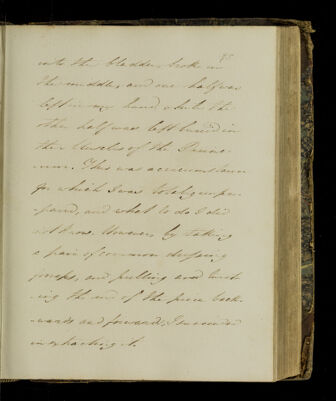 95
into the bladder broke in
the middle, and one half was
left in my hand while the
other half was left buried in
the Muscles of the Perine-
um. This was a circumstance
for which I was totally unpre-
pared, and what to do I did
not know. However, by taking
a pair of common dressing
forceps, and pulling and
ing the end of the piece back-
wards and forwards, I succeeded
in extracting it.